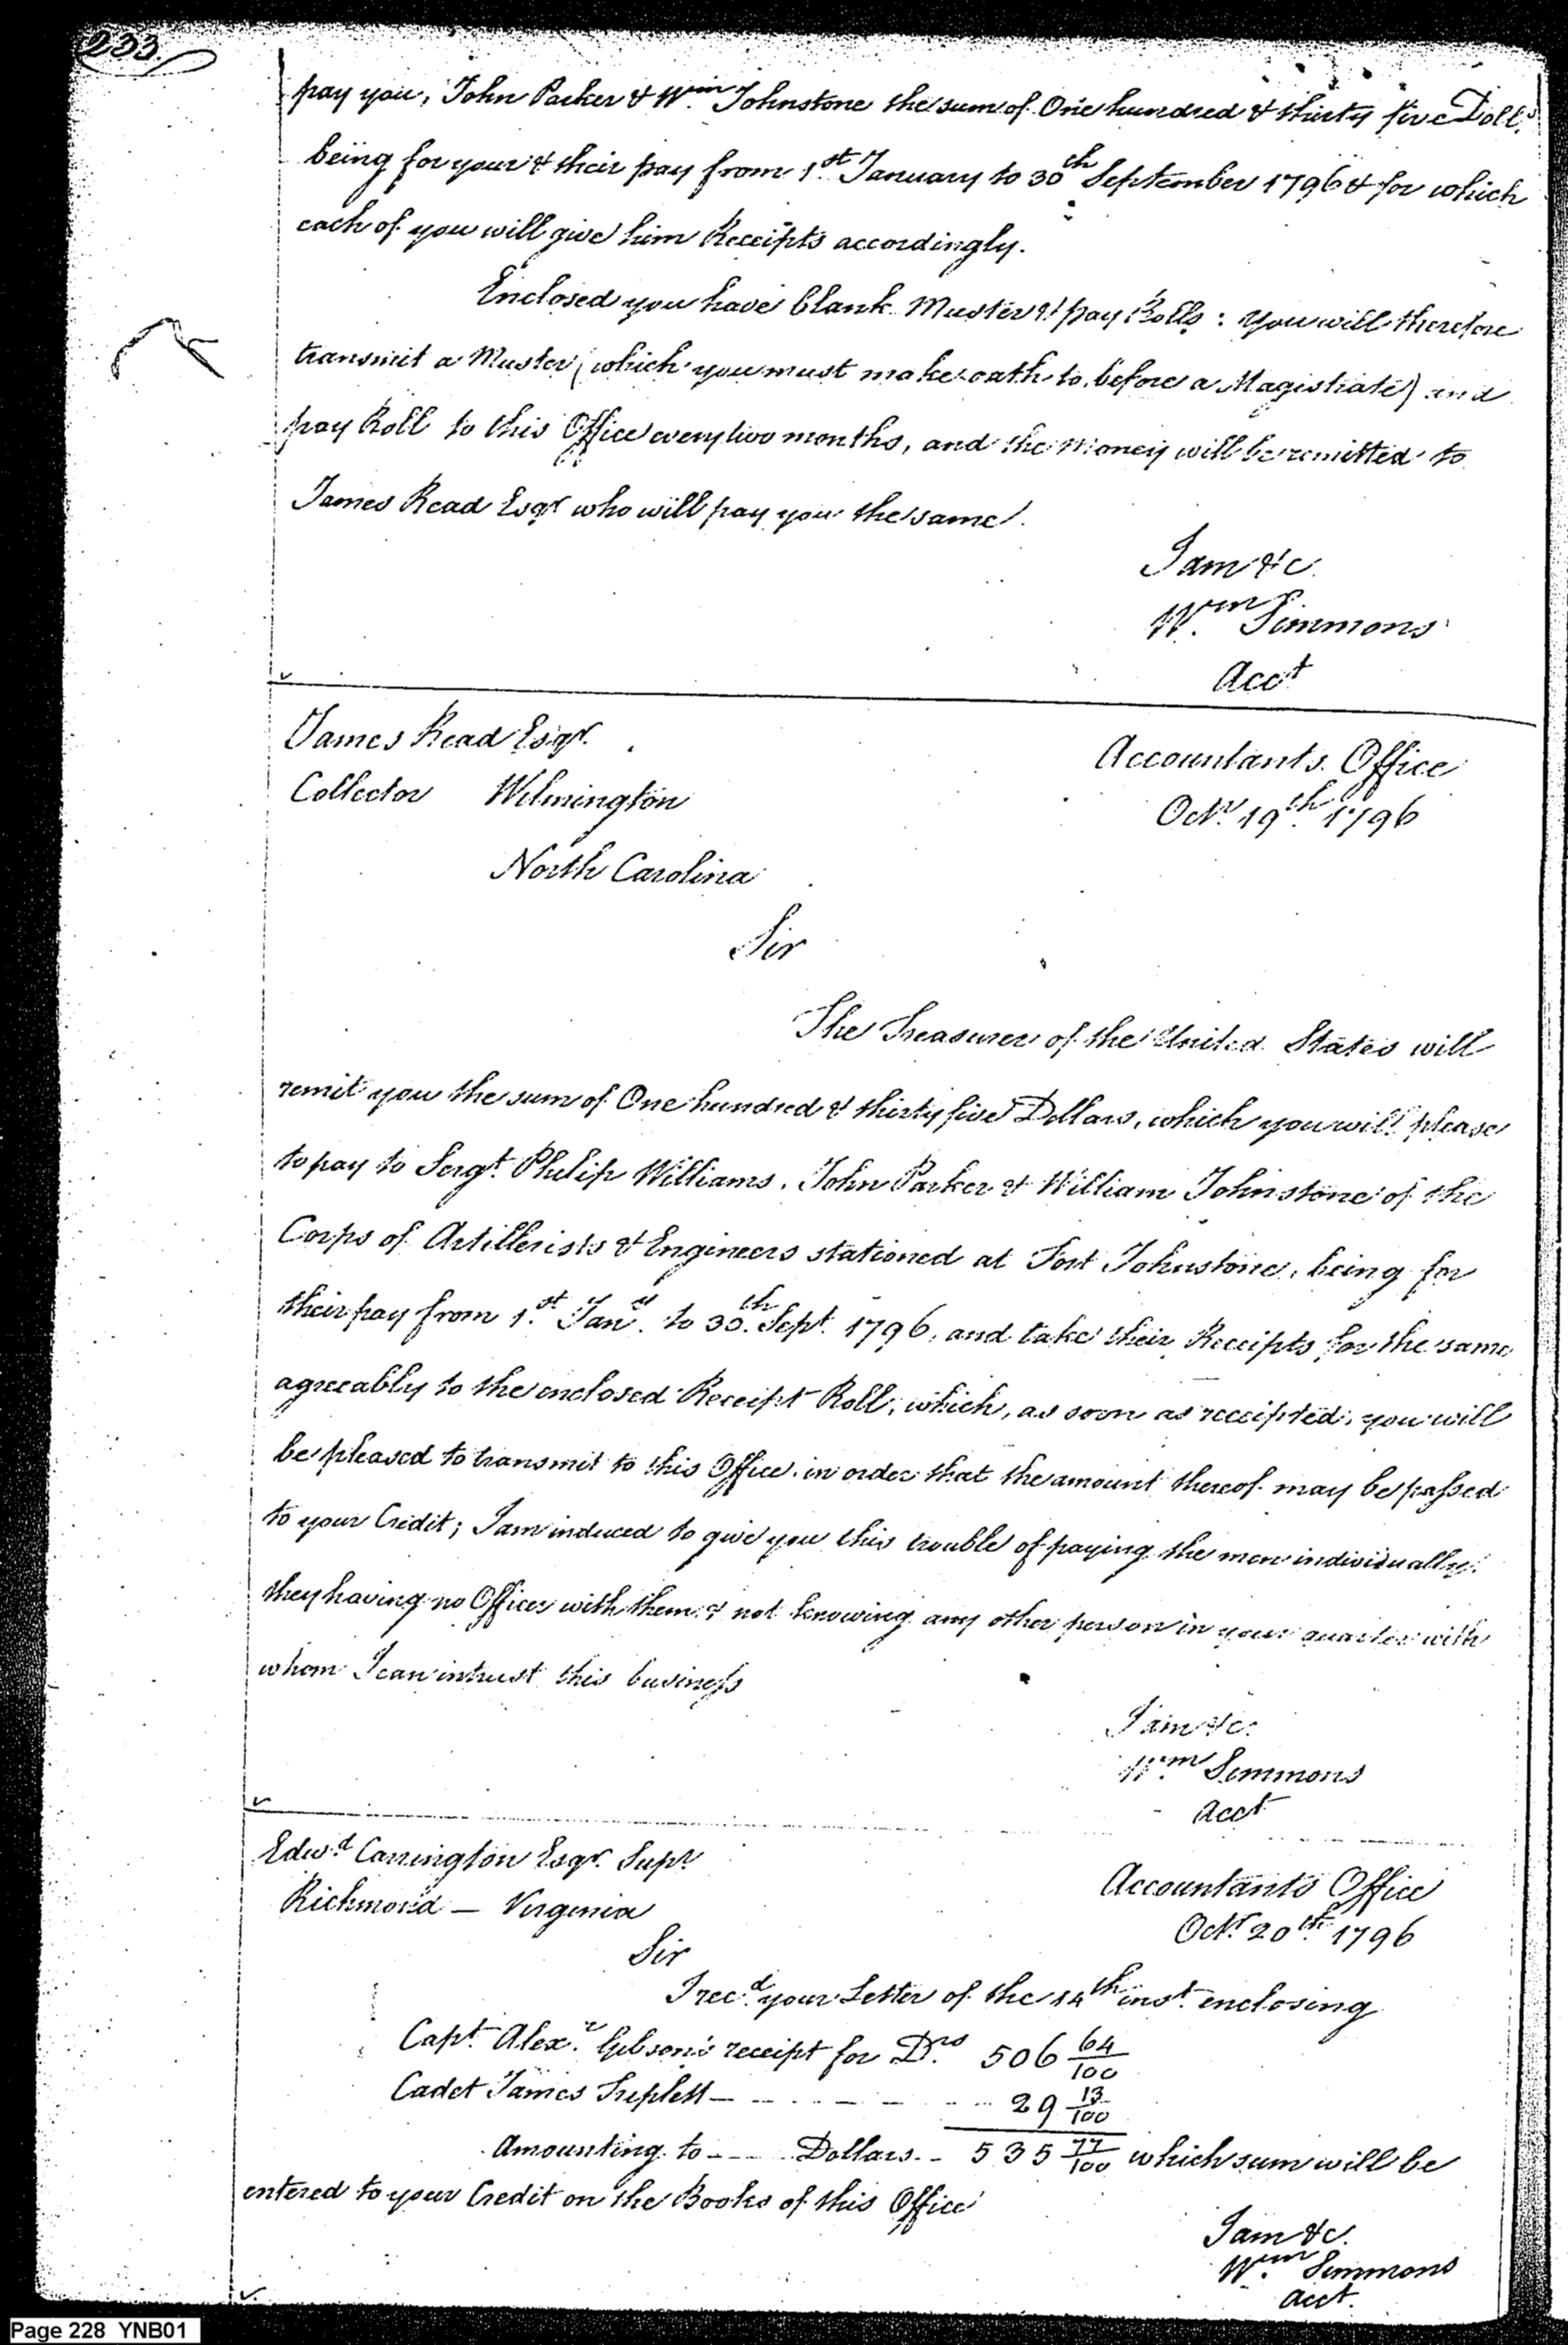 233.
pay you, John Parker & Wm. Johnstone the sum of One hundred & thirty five Dolls.
being for your & their pay from 1st. January to 30th September 1796 & for which
each of you will give him Receipts accordingly.
Enclosed you have blank Muster & pay Rolls: you will therefore
transmit a Muster (which you must make oath to, before a Magistrate) and
pay Roll to this Office every two months, and the money will be remitted to
James Read Esqr who will pay you the same.
I am &c.
Wm. Simmons
Acct
James Read Esqr.
Accountants Office
Collector Wilmington
Octr. 19th. 1796
North Carolina
Sir
The Treasurer of the United States will
remit you the sum of One hundred & thirty five Dollars, which you will please
to pay to Sergt. Philip Williams, John Parker & William Johnstone of the
Corps of Artillerists & Engineers stationed at Fort Johnstone, being for
their pay from 1st. Jany. to 30th. Sept. 1796, and take their Receipts for the same
agreeably to the enclosed Receipt Roll, which, as soon as receipted, you will
be pleased to transmit to this Office in order that the amount thereof may be passed
to your Credit; I am induced to give you this trouble of paying the men individually,
they having no Officer with them & not knowing any other person in your quarter with
whom I can intrust this business
I am &c.
Wm. Simmons
Acct
Edwd. Carrington Esqr. Supr
Accountants Office
Richmond — Virginia
Octr. 20th. 1796
Sir
I recd. your Letter of the 14th inst. enclosing
Capt. Alexr. Gibson's receipt for Drs. 506 64/100
Cadet James Triplett — 29 13/100
Amounting to — Dollars — 535 77/100 which sum will be
entered to your Credit on the Books of this Office
I am &c.
Wm. Simmons
Acct.
Page 228 YNB01